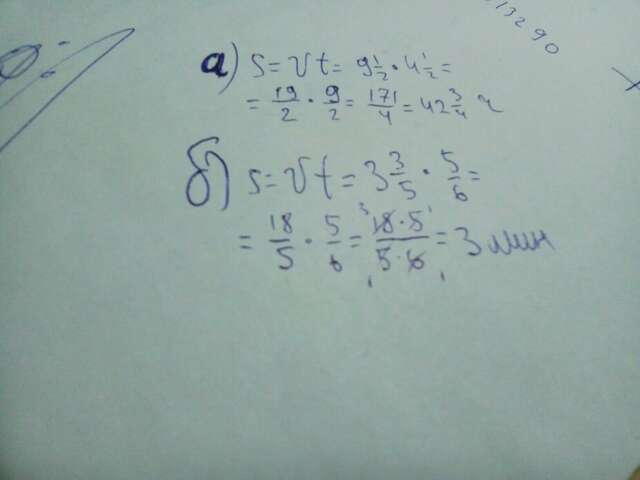 13290
а) S = Vt = 9 1/2 · 4 1/2 =
= 19/2 · 9/2 = 171/4 = 42 3/4 ч
б) S = Vt = 3 3/5 · 5/6 =
= 18/5 · 5/6 = 18·5/5·6 = 3 мин